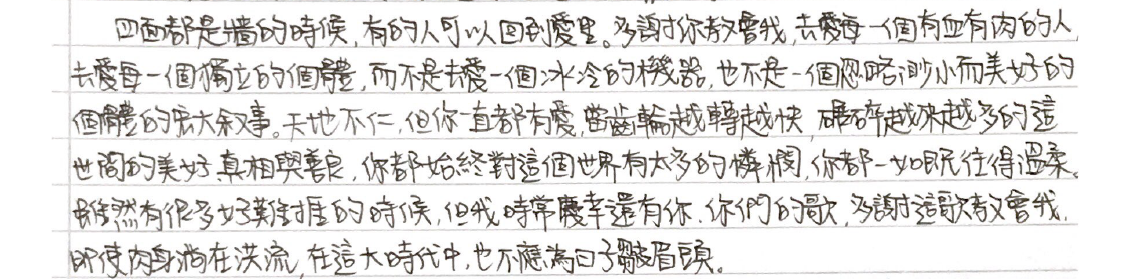 四面都是牆的時候,有的人可以回到愛里。多謝你教會我,去愛每一個有血有肉的人,
去愛每一個獨立的個體,而不是去愛一個冰冷的機器,也不是一個忽略渺小而美好的
個體的宏大叙事。天地不仁,但你一直都有愛,當齒輪越轉越快,碾碎越來越多的這
世間的美好真相與善良,你都始終對這個世界有太多的憐憫,你都一如既往得溫柔。
雖然有很多好難捱的時候,但我時常慶幸還有你、你們的歌,多謝這歌教會我,
即使肉身淌在洪流,在這大時代中,也不應為日子皺眉頭。